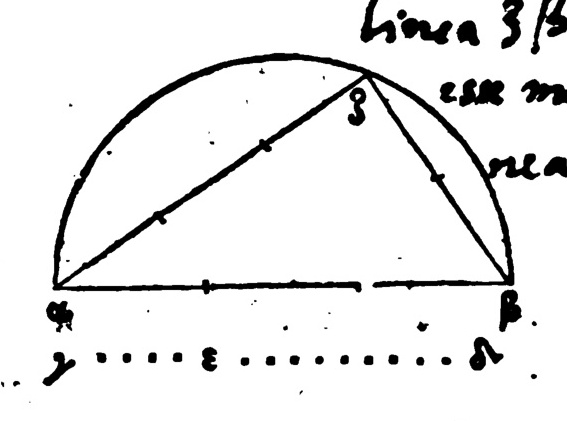 linea ζβ
esse m
nea
ζ
α β
γ ..... ε .......... δ